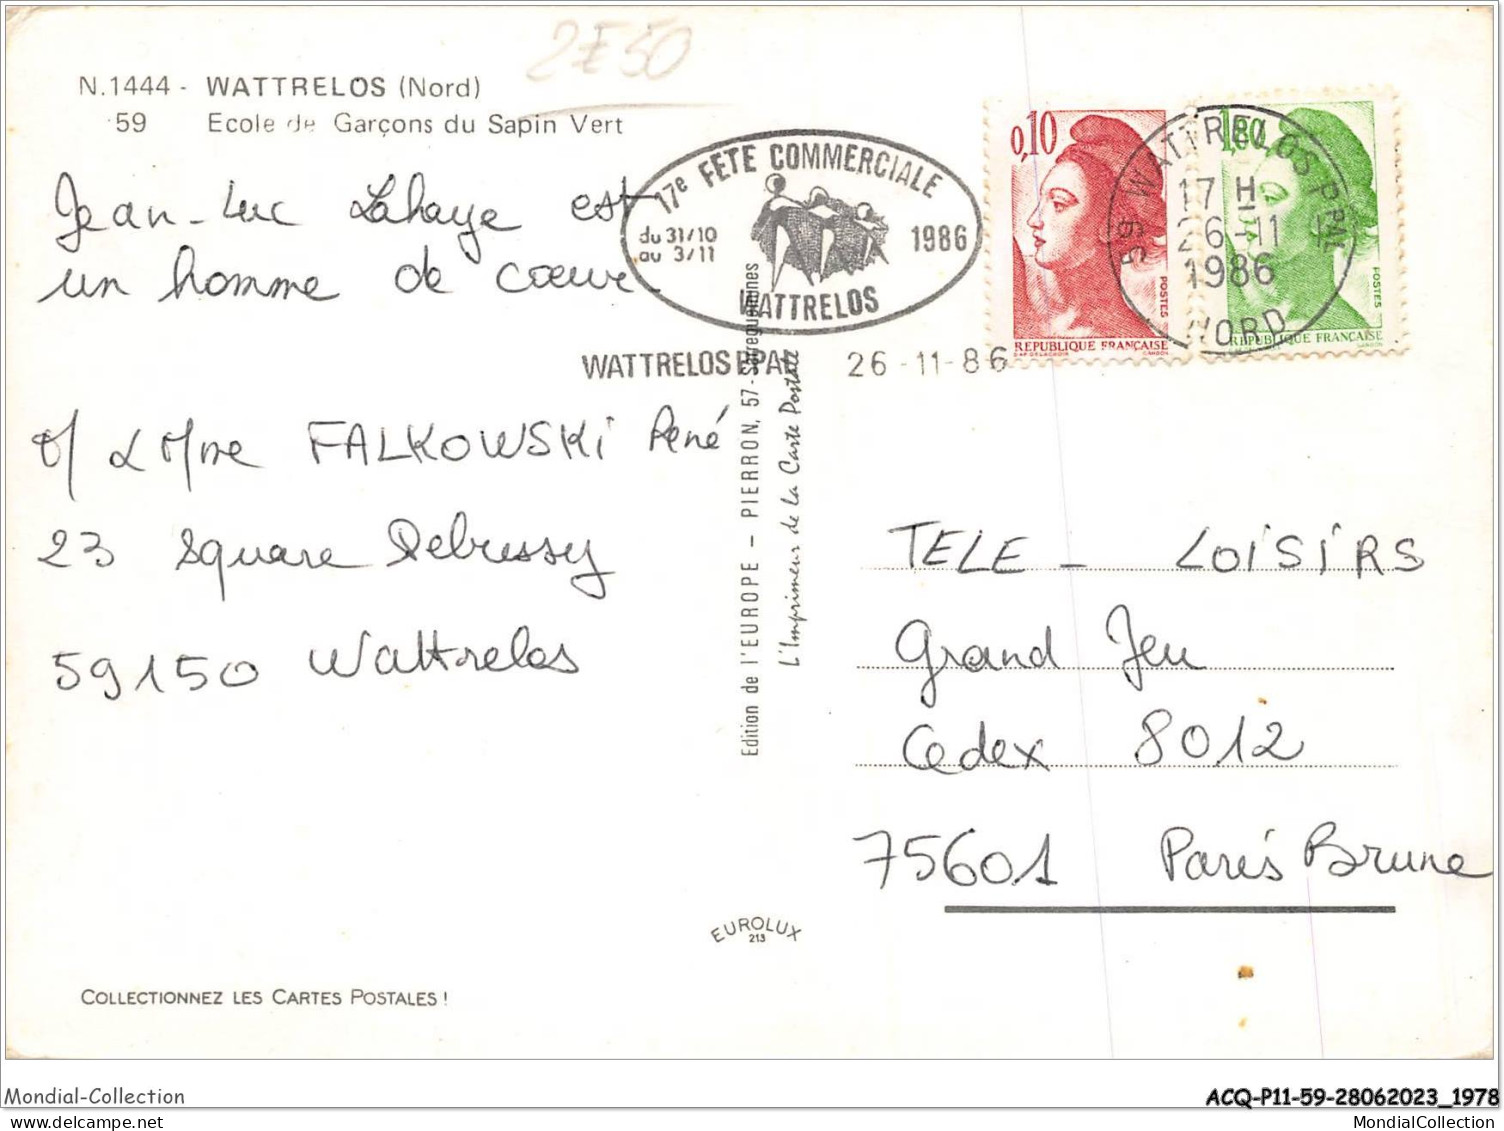 2F50
N.1444 - WATTRELOS (Nord)
59 Ecole de Garçons du Sapin Vert
Jean-Luc Lahaye est
un homme de coeur
M & Mme FALKOWSKI René
23 Square Debussy
59150 Wattrelos
17e FÊTE COMMERCIALE
du 31/10
au 3/11
1986
WATTRELOS
WATTRELOS PPAL 26-11-86
0,10
POSTES
REPUBLIQUE FRANÇAISE
1,80
POSTES
REPUBLIQUE FRANÇAISE
WATTRELOS PPAL
17 H
26-11
1986
59 NORD
Edition de l'EUROPE - PIERRON, 57 - Sarreguemines
L'Imprimeur de la Carte Postale
TELE - LOISIRS
Grand Jeu
Cedex 8012
75601 Paris Brune
EUROLUX
213
COLLECTIONNEZ LES CARTES POSTALES !
Mondial-Collection
ACQ-P11-59-28062023_1978
delcampe.net
MondialCollection